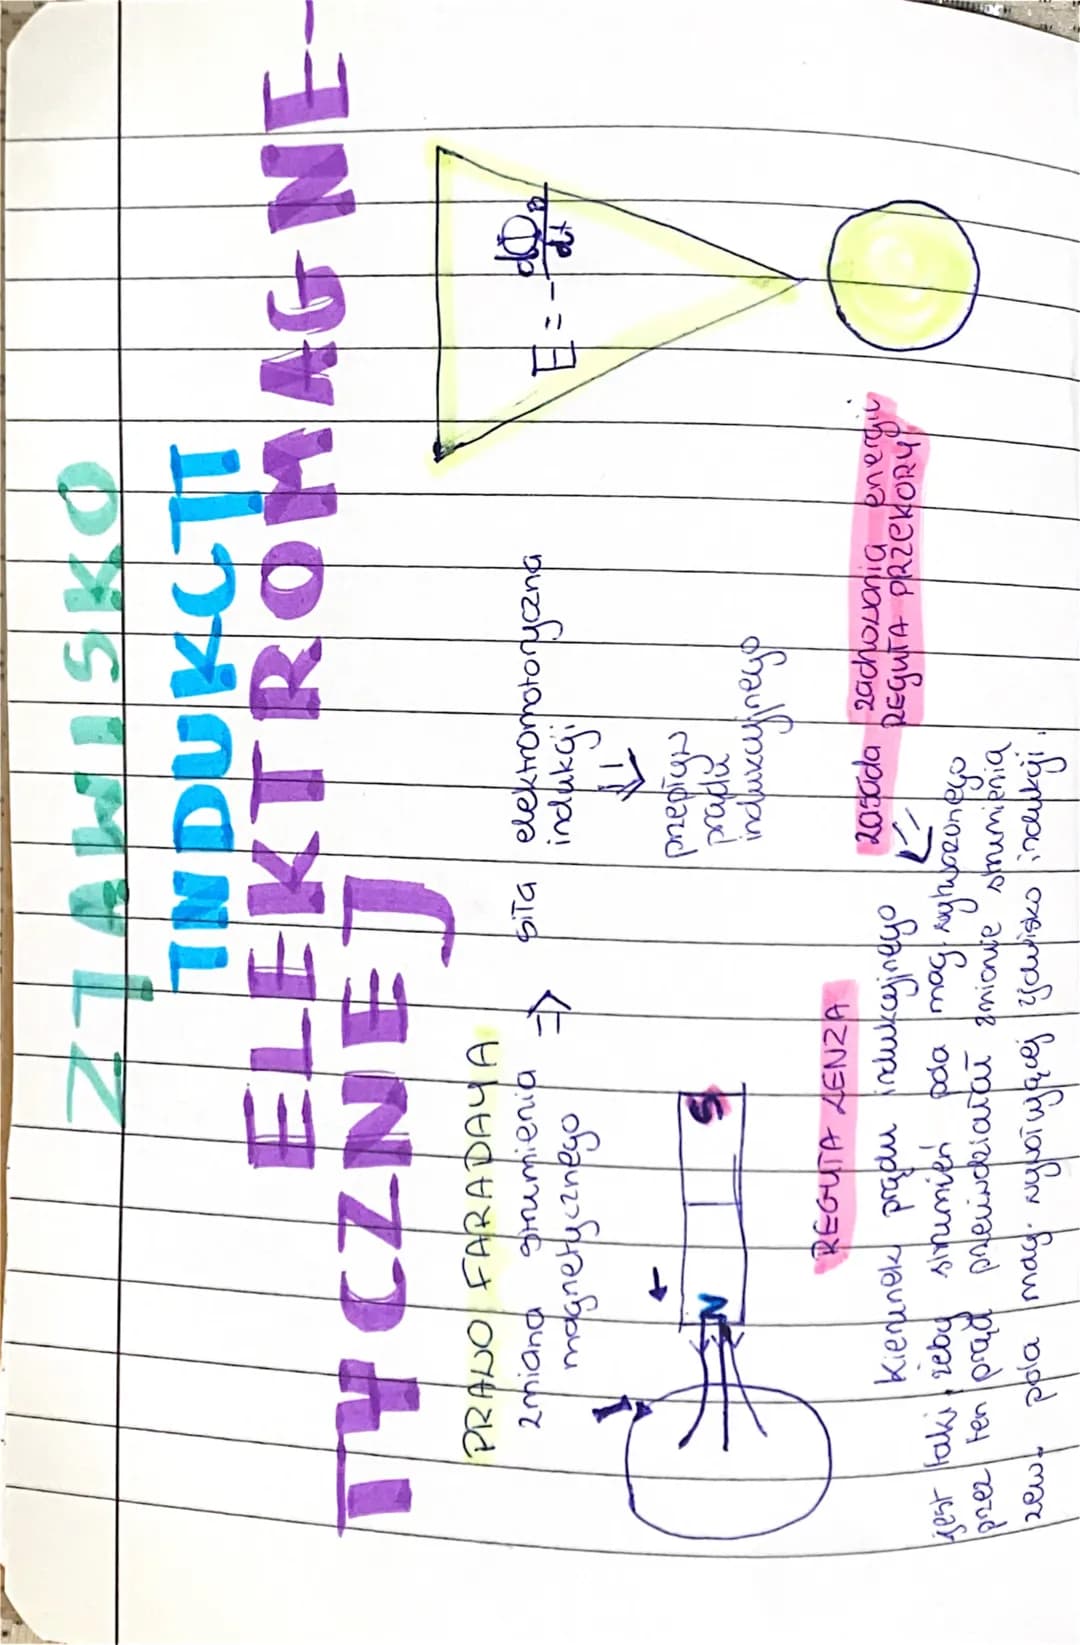 ZJAWISKO
INDUKCJI
ELEKTROMAGNE-
TYCZNEJ
PRAWO FARADAYA
zmiana strumienia
magnetycznego
⇒
siła elektromotoryczna
indukcji
⇓
przepływ
prądu
indukcyjnego
E = - dΦB
dt
I
N
S
REGUŁA LENZA
zasada zachowania energii
REGUŁA PRZEKORY
Kierunek prądu indukcyjnego
jest taki, żeby strumień pola mag. wytworzonego
przez ten prąd przeciwdziałał zmianie strumienia
zew. pola mag. wywołującej zjawisko indukcji.